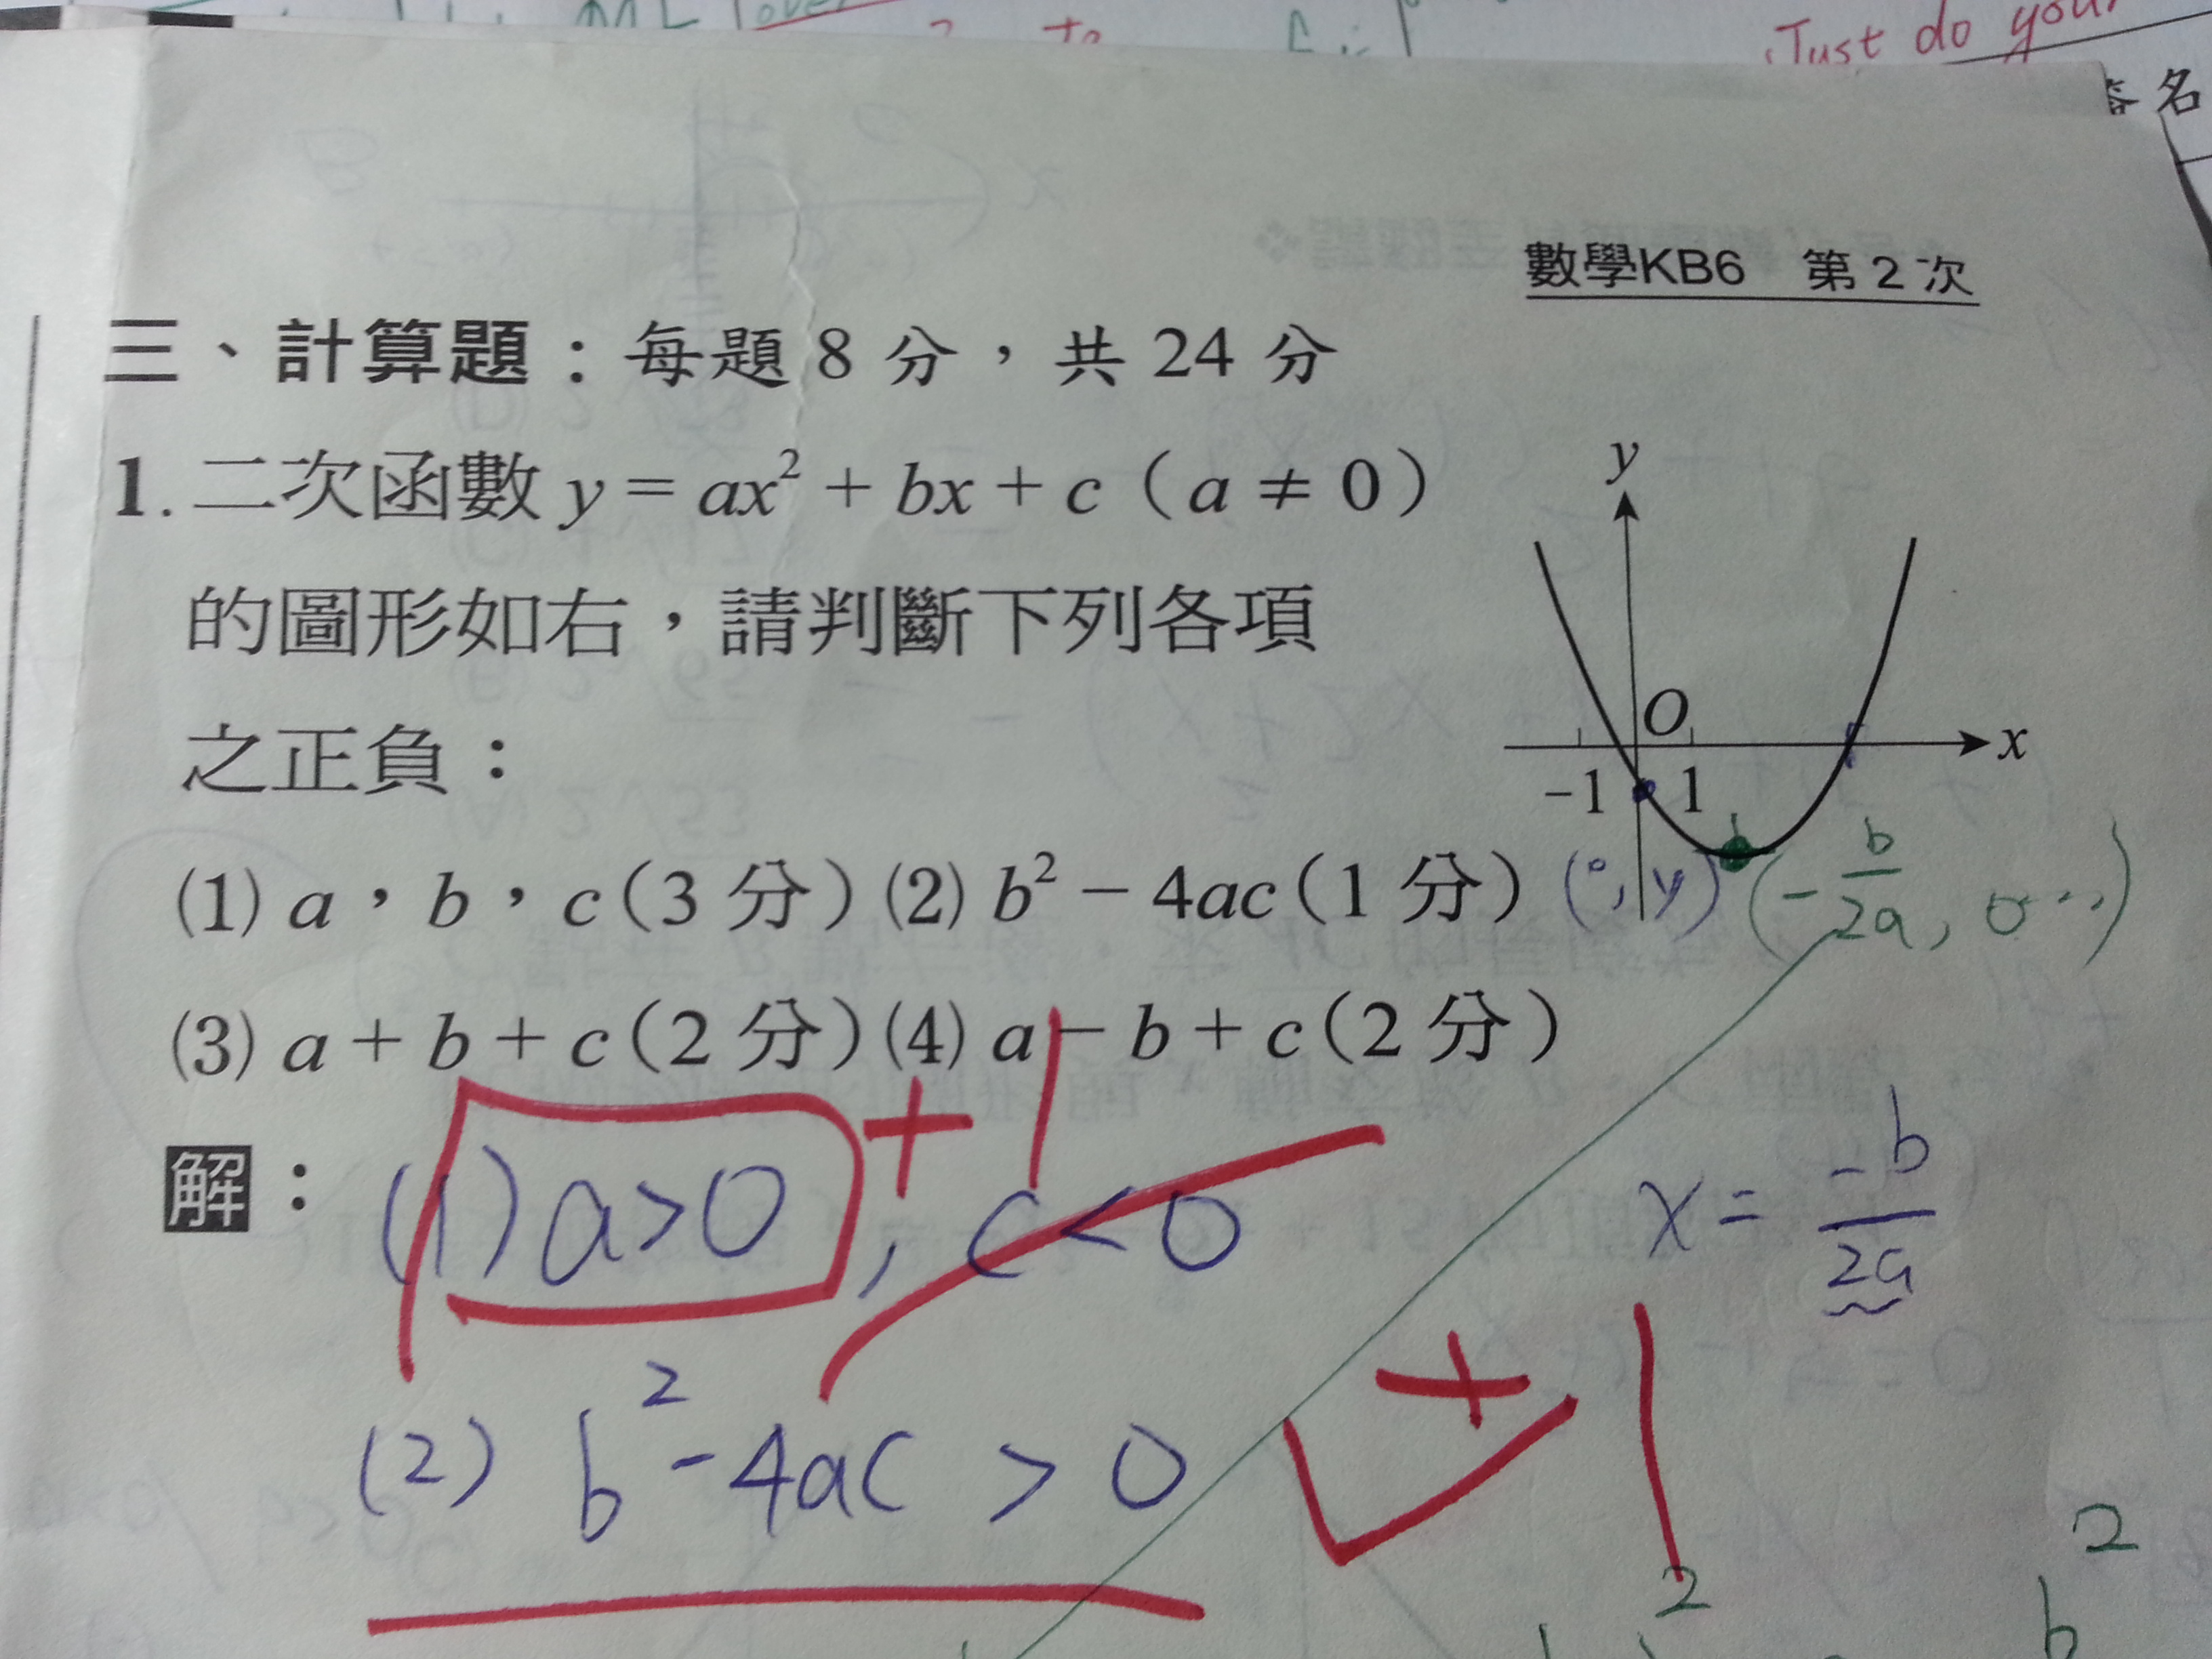 Just do your
簽名
數學KB6 第2次
三、計算題:每題 8 分,共 24 分
1. 二次函數 y = ax² + bx + c(a ≠ 0)
的圖形如右,請判斷下列各項
之正負:
y
O
x
-1
1
(1) a,b,c(3 分)(2) b² − 4ac(1 分)
(0, y)
(-b/2a, 0...)
(3) a + b + c(2 分)(4) a − b + c(2 分)
+1
解: (1) a>0, c<0
x = -b/2a
(2) b²-4ac > 0
+1
2
2
b